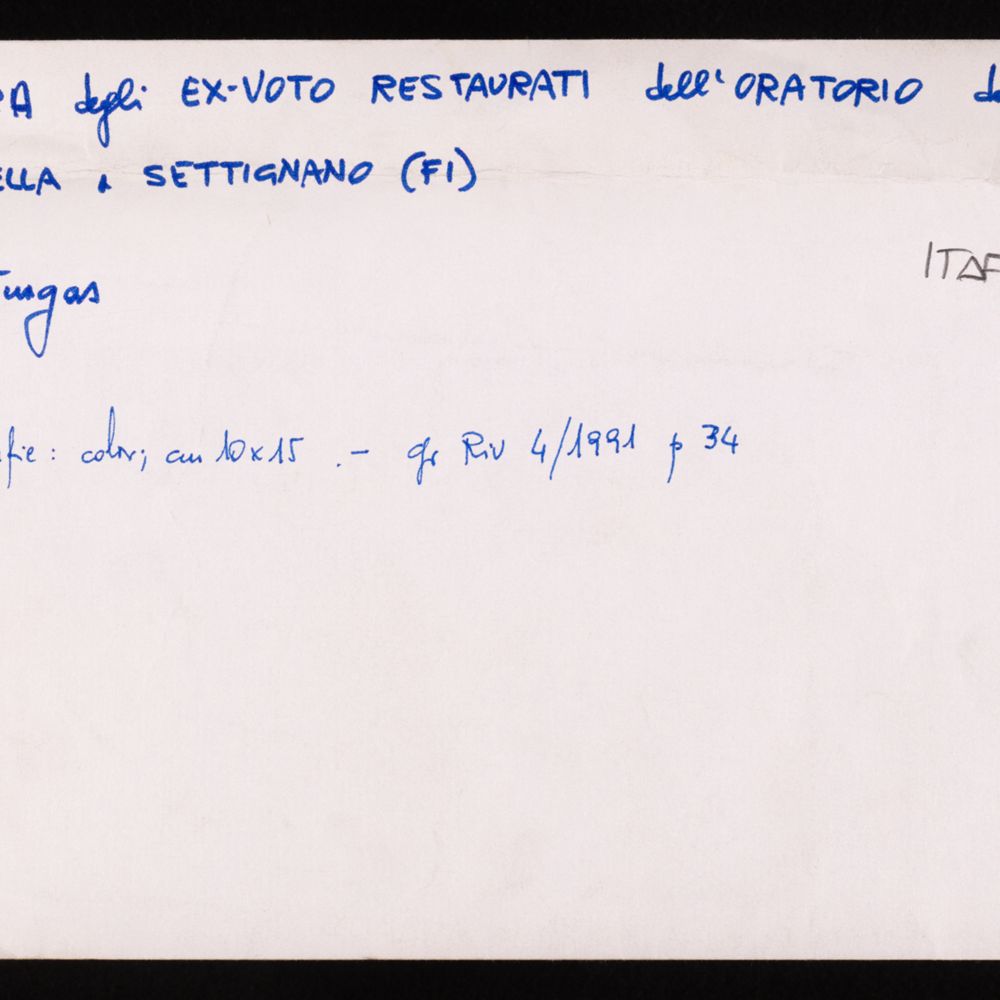 RA degli EX-VOTO RESTAURATI dell'ORATORIO de
ELLA a SETTIGNANO (FI)
ITAF
Turgas
fie: color; cm 10x15 .- gr Riv 4/1991 p 34